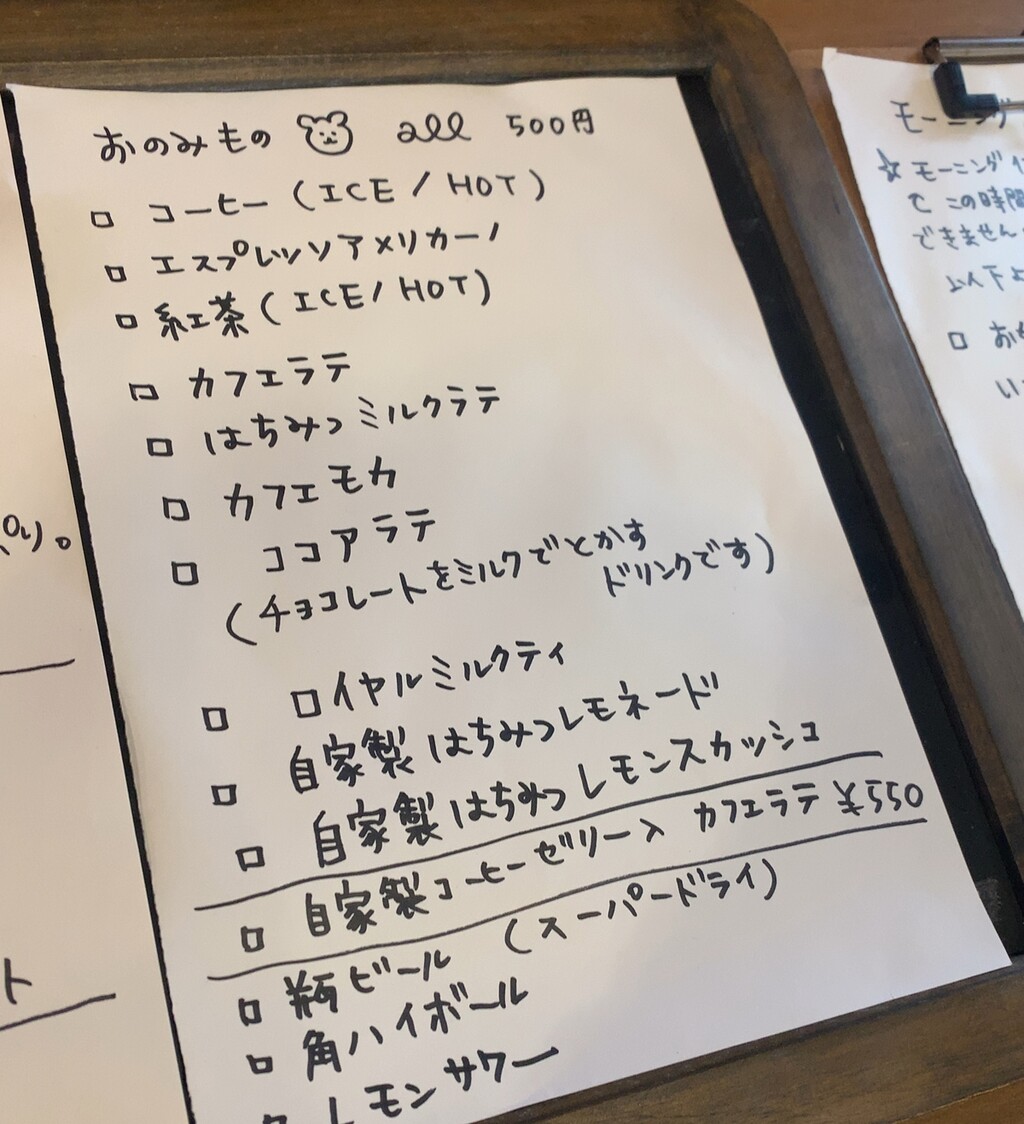 おのみもの all 500円
□ コーヒー (ICE / HOT)
□ エスプレッソアメリカーノ
□ 紅茶 (ICE / HOT)
□ カフェラテ
□ はちみつミルクラテ
□ カフェモカ
□ ココアラテ
(チョコレートをミルクでとかす
ドリンクです)
□ ロイヤルミルクティ
□ 自家製はちみつレモネード
□ 自家製はちみつレモンスカッシュ
□ 自家製コーヒーゼリー入 カフェラテ ¥550
□ 瓶ビール (スーパードライ)
□ 角ハイボール
レモンサワー
モーニング
☆ モーニング
この時間
できません
以下よ
□ お
い
ト